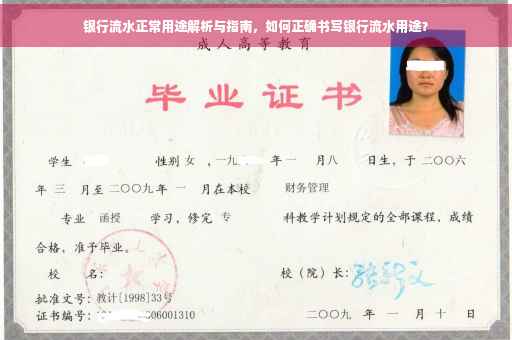 银行流水正常用途解析与指南，如何正确书写银行流水用途?
成人高等教育
毕业证书
学生 性别 女 ，一九 年 一 月 八 日生，于 二〇〇六
年 三 月至 二〇〇九 年 一 月在本校 财务管理
专业 函授 学习，修完 专 科教学计划规定的全部课程，成绩
合格，准予毕业。
校 名： 校（院）长：
批准文号：教计[1998]33号
证书编号： 06001310 二〇〇九 年 一 月 十 日